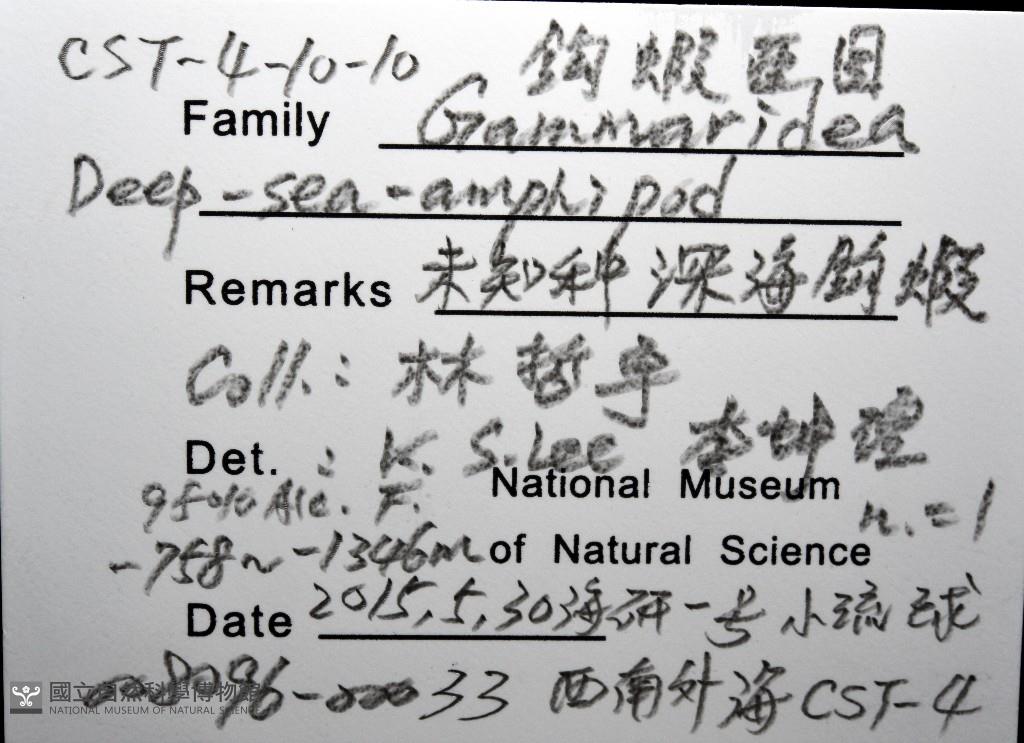 CST-4-10-10 鉤蝦亞目
Family Gammaridea
Deep-sea-amphipod
Remarks 未知种深海鉤蝦
Coll.: 林哲宇
Det. : K. S. Lee 李坤瑄
National Museum
95% Alc. F. n.=1
-758~-1346m of Natural Science
Date 2015,5,30海研一号小琉球
33 西南外海CST-4
國立自然科學博物館
NATIONAL MUSEUM OF NATURAL SCIENCE